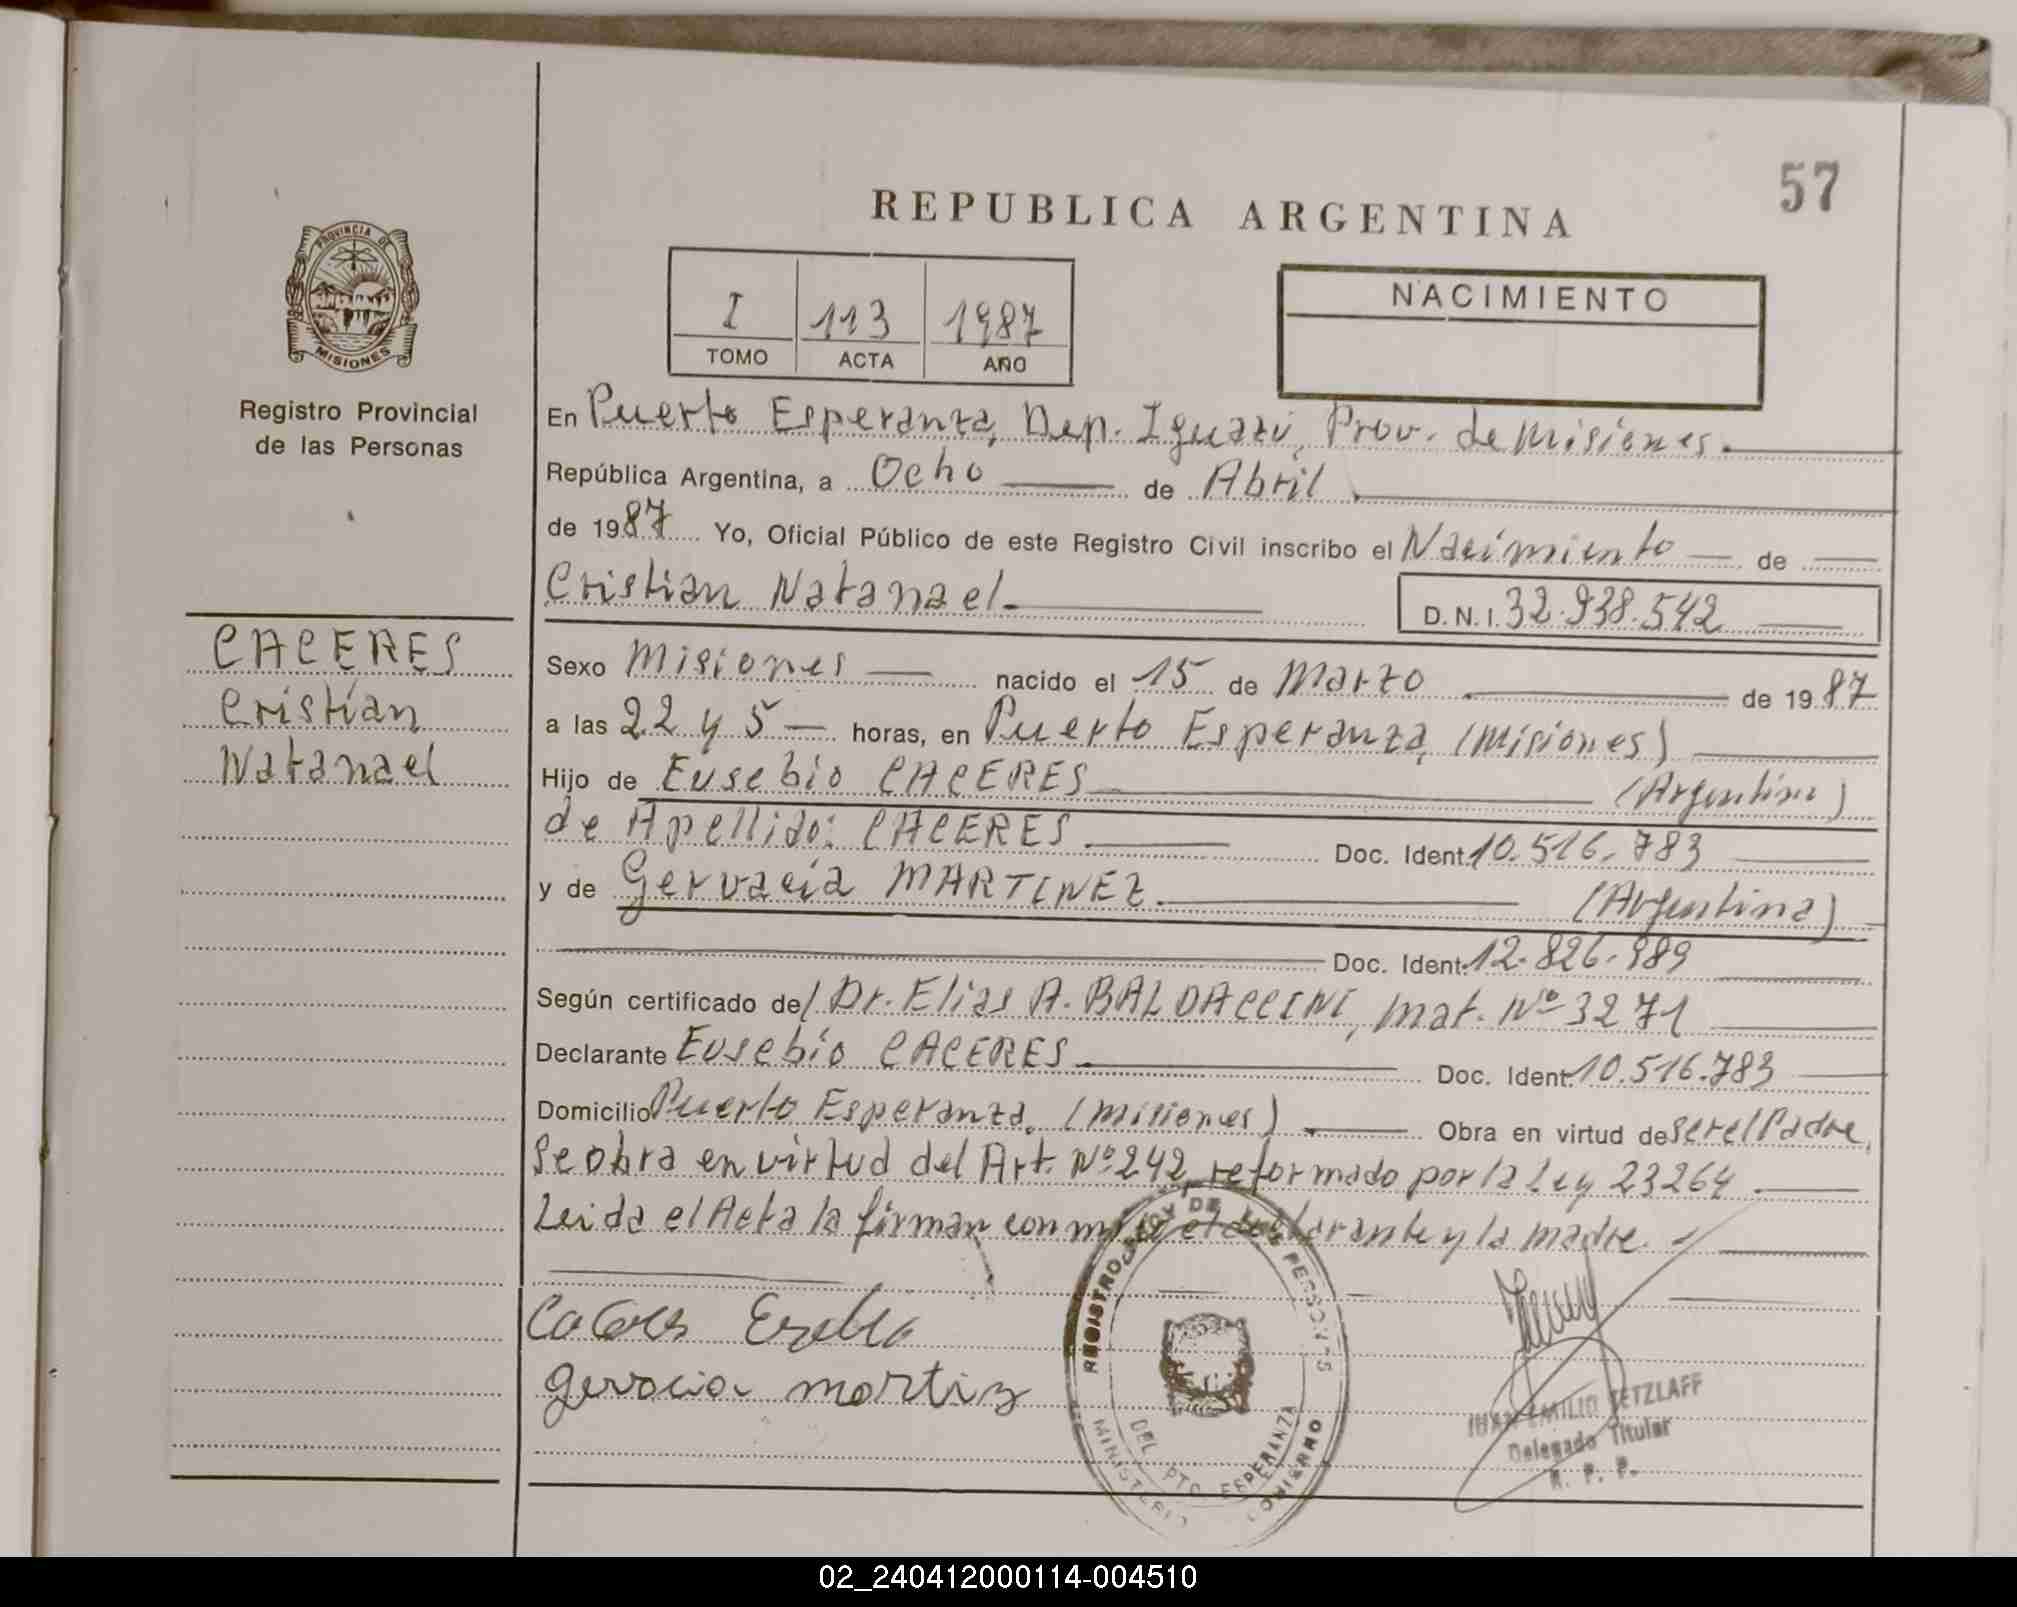 57
REPUBLICA ARGENTINA
PROVINCIA DE
MISIONES
Registro Provincial
de las Personas
I 113 1987
TOMO ACTA AÑO
NACIMIENTO
En Puerto Esperanza, Dep. Iguazú, Prov. de Misiones.
República Argentina, a Ocho de Abril
de 1987 Yo, Oficial Público de este Registro Civil inscribo el Nacimiento de
Cristian Natanael
D.N.I. 32.938.542
CACERES
Cristian
Natanael
Sexo Misiones nacido el 15 de Marzo de 1987
a las 22 y 5 horas, en Puerto Esperanza, (Misiones)
Hijo de Eusebio CACERES (Argentino)
de Apellido: CACERES Doc. Ident. 10.516.783
y de Gervacia MARTINEZ (Argentina)
Doc. Ident. 12.826.989
Según certificado del Dr. Elias A. BALDACCINI, Mat. Nº 3271
Declarante Eusebio CACERES Doc. Ident. 10.516.783
Domicilio Puerto Esperanza, (Misiones) Obra en virtud de ser el Padre,
Se obra en virtud del Art. Nº 242, reformado por la Ley 23264
Leida el Acta la firman con migo el declarante y la madre.
REGISTRO DE LAS PERSONAS
DEL PTO ESPERANZA
MINISTERIO GOBIERNO
Gervacia Mortiz
JUAN EMILIO TETZLAFF
Delegado Titular
R. P. P.
02_240412000114-004510